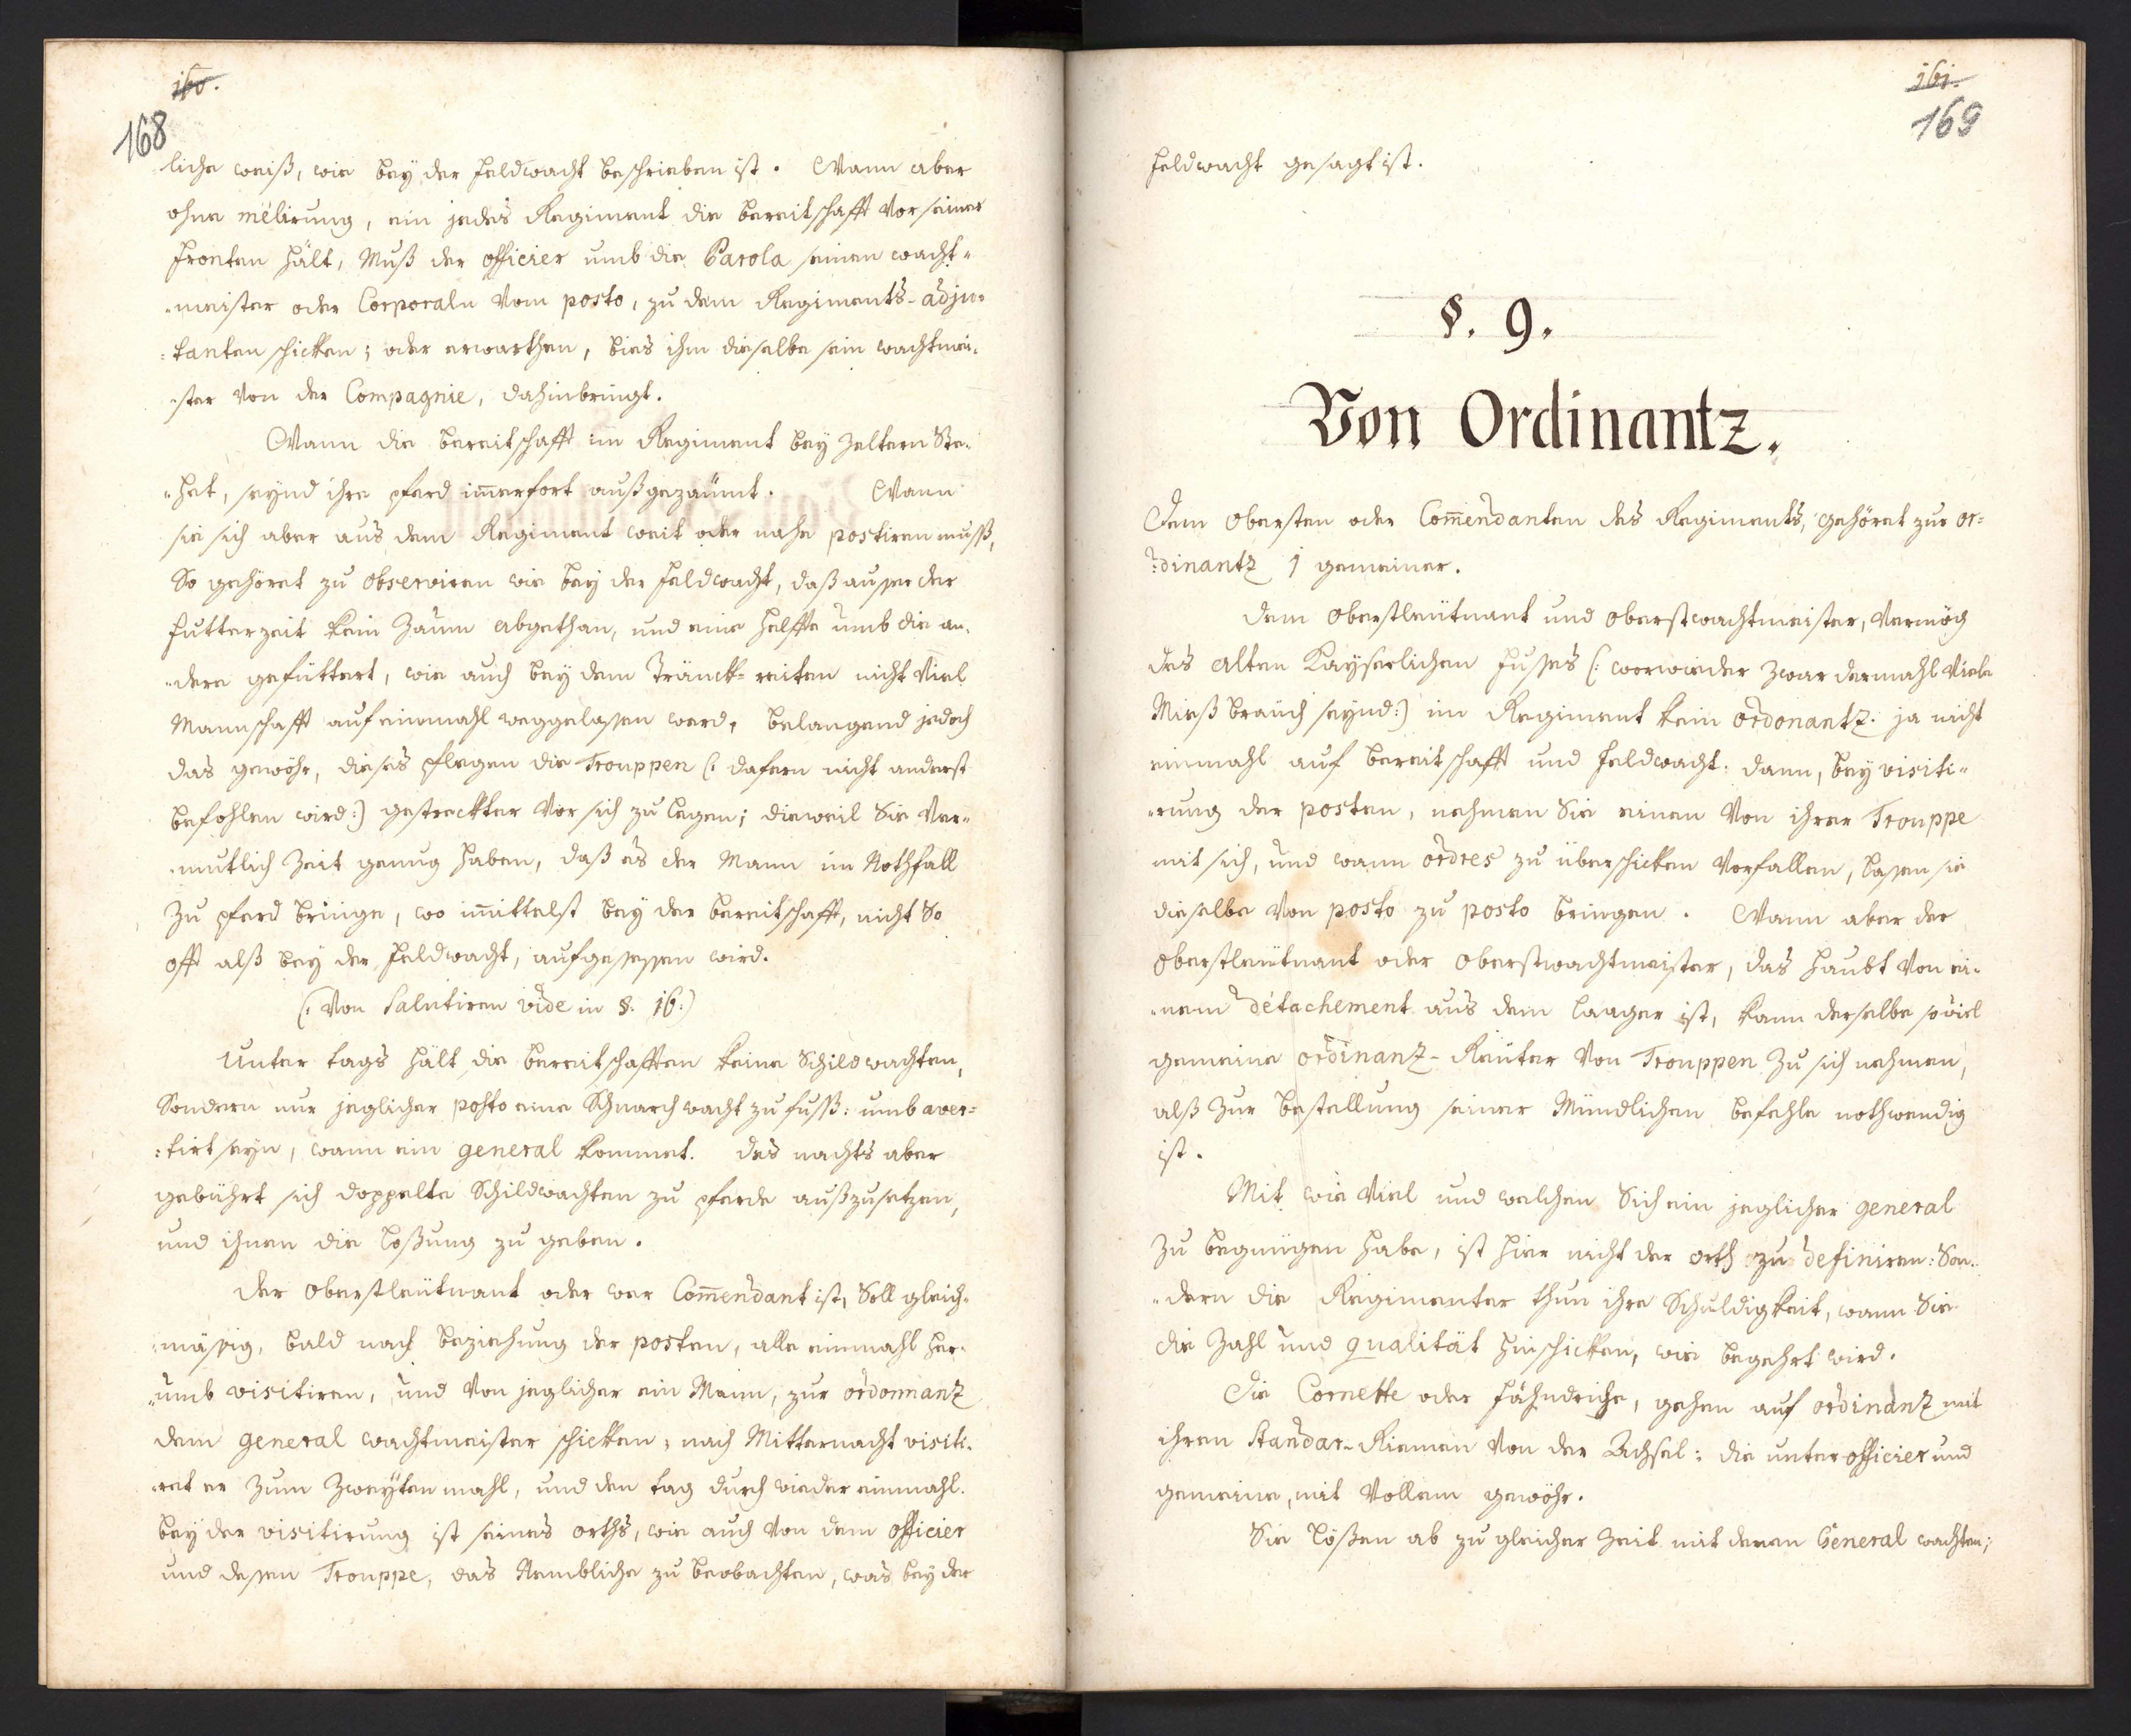 160.
168
liche weiß, wie beÿ der feldwacht beschrieben ist. Wann aber
ohne mélirung, ein jedes Regiment die bereitschafft vor seiner
fronten hält, Muß der officier umb die Parola seinen wacht-
-meister oder Corporaln vom posto, zu dem Regiments-adju-
-tanten schicken; oder erwarthen, bies ihm dieselbe sein wachtmei-
-ster von der Compagnie, dahinbringt.
Wann die bereitschafft im Regiment beÿ Zeltern Ste-
-het, seÿnd ihre pferd im̄erfort außgezäumt. Wann
sie sich aber aus dem Regiment weit oder nahe postiren muß,
So gehöret zu observiren wie beÿ der feldwacht, daß ausser der
futterzeit kein Zaum abgethan, und eine helffte umb die an-
-dere gefüttert, wie auch beÿ dem Tränck-reiten nicht Viel
Mannschafft auf einmahl weggelassen werd, belangend jedoch
das gewöhr, dieses pflegen die Trouppen (: dafern nicht anderst
befohlen wird:) gestreckter vor sich zu legen; dieweil Sie ver-
-mutlich Zeit genug haben, daß es der Mann im Nothfall
Zu pferd bringe, wo im̄ittelst beÿ der bereitschafft, nicht So
offt alß beÿ der feldwacht, aufgesessen wird.
(: Von Salutiren vide in §. 16:)
Unter tags hält die bereitschafften keine Schildwachten,
Sondern nur jeglicher posto eine Schnarchwacht zu fuß: umb aver-
-tirt seÿn, wann ein general kommet. des nachts aber
gebührt sich doppelte Schildwachten zu pferde außzusetzen,
und ihnen die loßung zu geben.
Der Oberstleütnant oder wer Com̄endant ist, Soll gleich-
-mässig, bald nach beziehung der posten, alle einmahl her-
-umb visitiren, und von jeglicher ein Mann, zur ordonnanz
dem general wachtmeister schicken; nach Mitternacht visiti-
-ret er zum Zweÿten mahl, und den tag durch wieder einmahl.
beÿ der visitirung ist seines orths, wie auch von dem officier
und dessen Trouppe, das Nembliche zu beobachten, was beÿ der
161.
169
feldwacht gesagt ist.
§. 9.
Von Ordinantz.
Dem Obersten oder Com̄endanten des Regiments, gehöret zur or-
-dinantz 1 gemeiner.
dem Oberstleütnant und Oberstwachtmeister, Vermög
des alten Kaÿserlichen fusses (: worwieder zwar dermahl Viele
Mießbrauch seÿnd:) im Regiment kein ordonantz. ja nicht
einmahl auf bereitschafft und feldwacht: dann, beÿ visiti-
-rung der posten, nehmen Sie einen Von ihrer Trouppe
mit sich, und wann ordres zu überschicken vorfallen, lassen sie
dieselbe von posto zu posto bringen. Wann aber der
Oberstleütnant oder Oberstwachtmeister, das haubt von ei-
-nem détachement aus dem laager ist, kann derselbe so viel
gemeine ordinanz-Reüter Von Trouppen Zu sich nehmen,
alß zur bestellung seiner Mündlichen befehle nothwendig
ist.
Mit wie Viel und welchen Sich ein jeglicher general
Zu begnügen habe, ist hier nicht der orth zu definiren: Son-
-dern die Regimenter thun ihre Schuldigkeit, wann Sie
die Zahl und qualität hinschicken, wie begehrt wird.
Die Cornette oder fähndriche, gehen auf ordinanz mit
ihren Standar-Riemen von der Achsel: die unter officier und
gemeine, mit Vollem gewöhr.
Sie lößen ab zu gleicher Zeit mit denen General wachten;